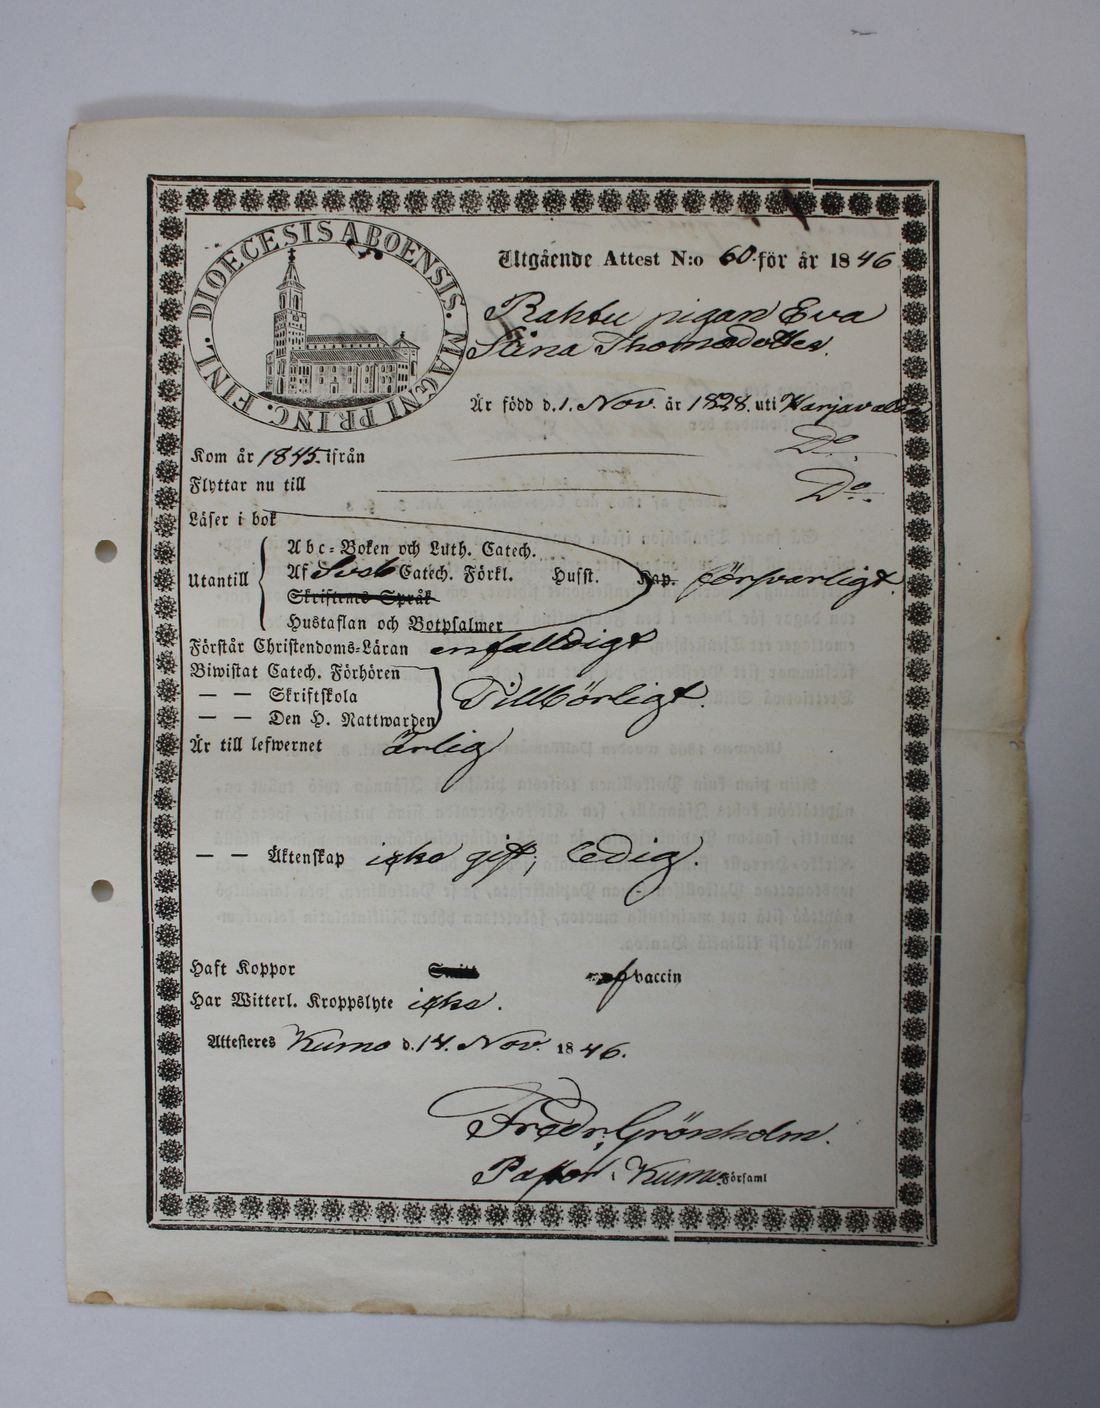 DIOECESIS ABOENSIS. MAGNI PRINC. FINL.
Utgående Attest N:o 60 för år 1846
Rahtu pigan Eva
Stina Thomædotter.
Är född d. 1. Nov. år 1828. uti Harjavalta
Kom år 1845. ifrån Do.
Flyttar nu till Do.
Läser i bok
Abc-Boken och Luth. Catech.
Utantill Af Sveb Catech. Förkl. Husst. Kap. försvarligt.
Skriftens Språk
Hustaflan och Botpsalmer
Förstår Christendoms-Läran enfalldigt
Biwistat Catech. Förhören
— — Skriftskola Tillbörligt.
— — Den H. Nattwarden
Är till lefwernet ärlig
— — Äktenskap icke gift, ledig.
Haft Koppor Smitt af vaccin
Har Witterl. Kroppslyte icke.
Attesteres Kumo d. 14. Nov. 1846.
Fredr. Grönholm.
Pastor i Kumo Församl